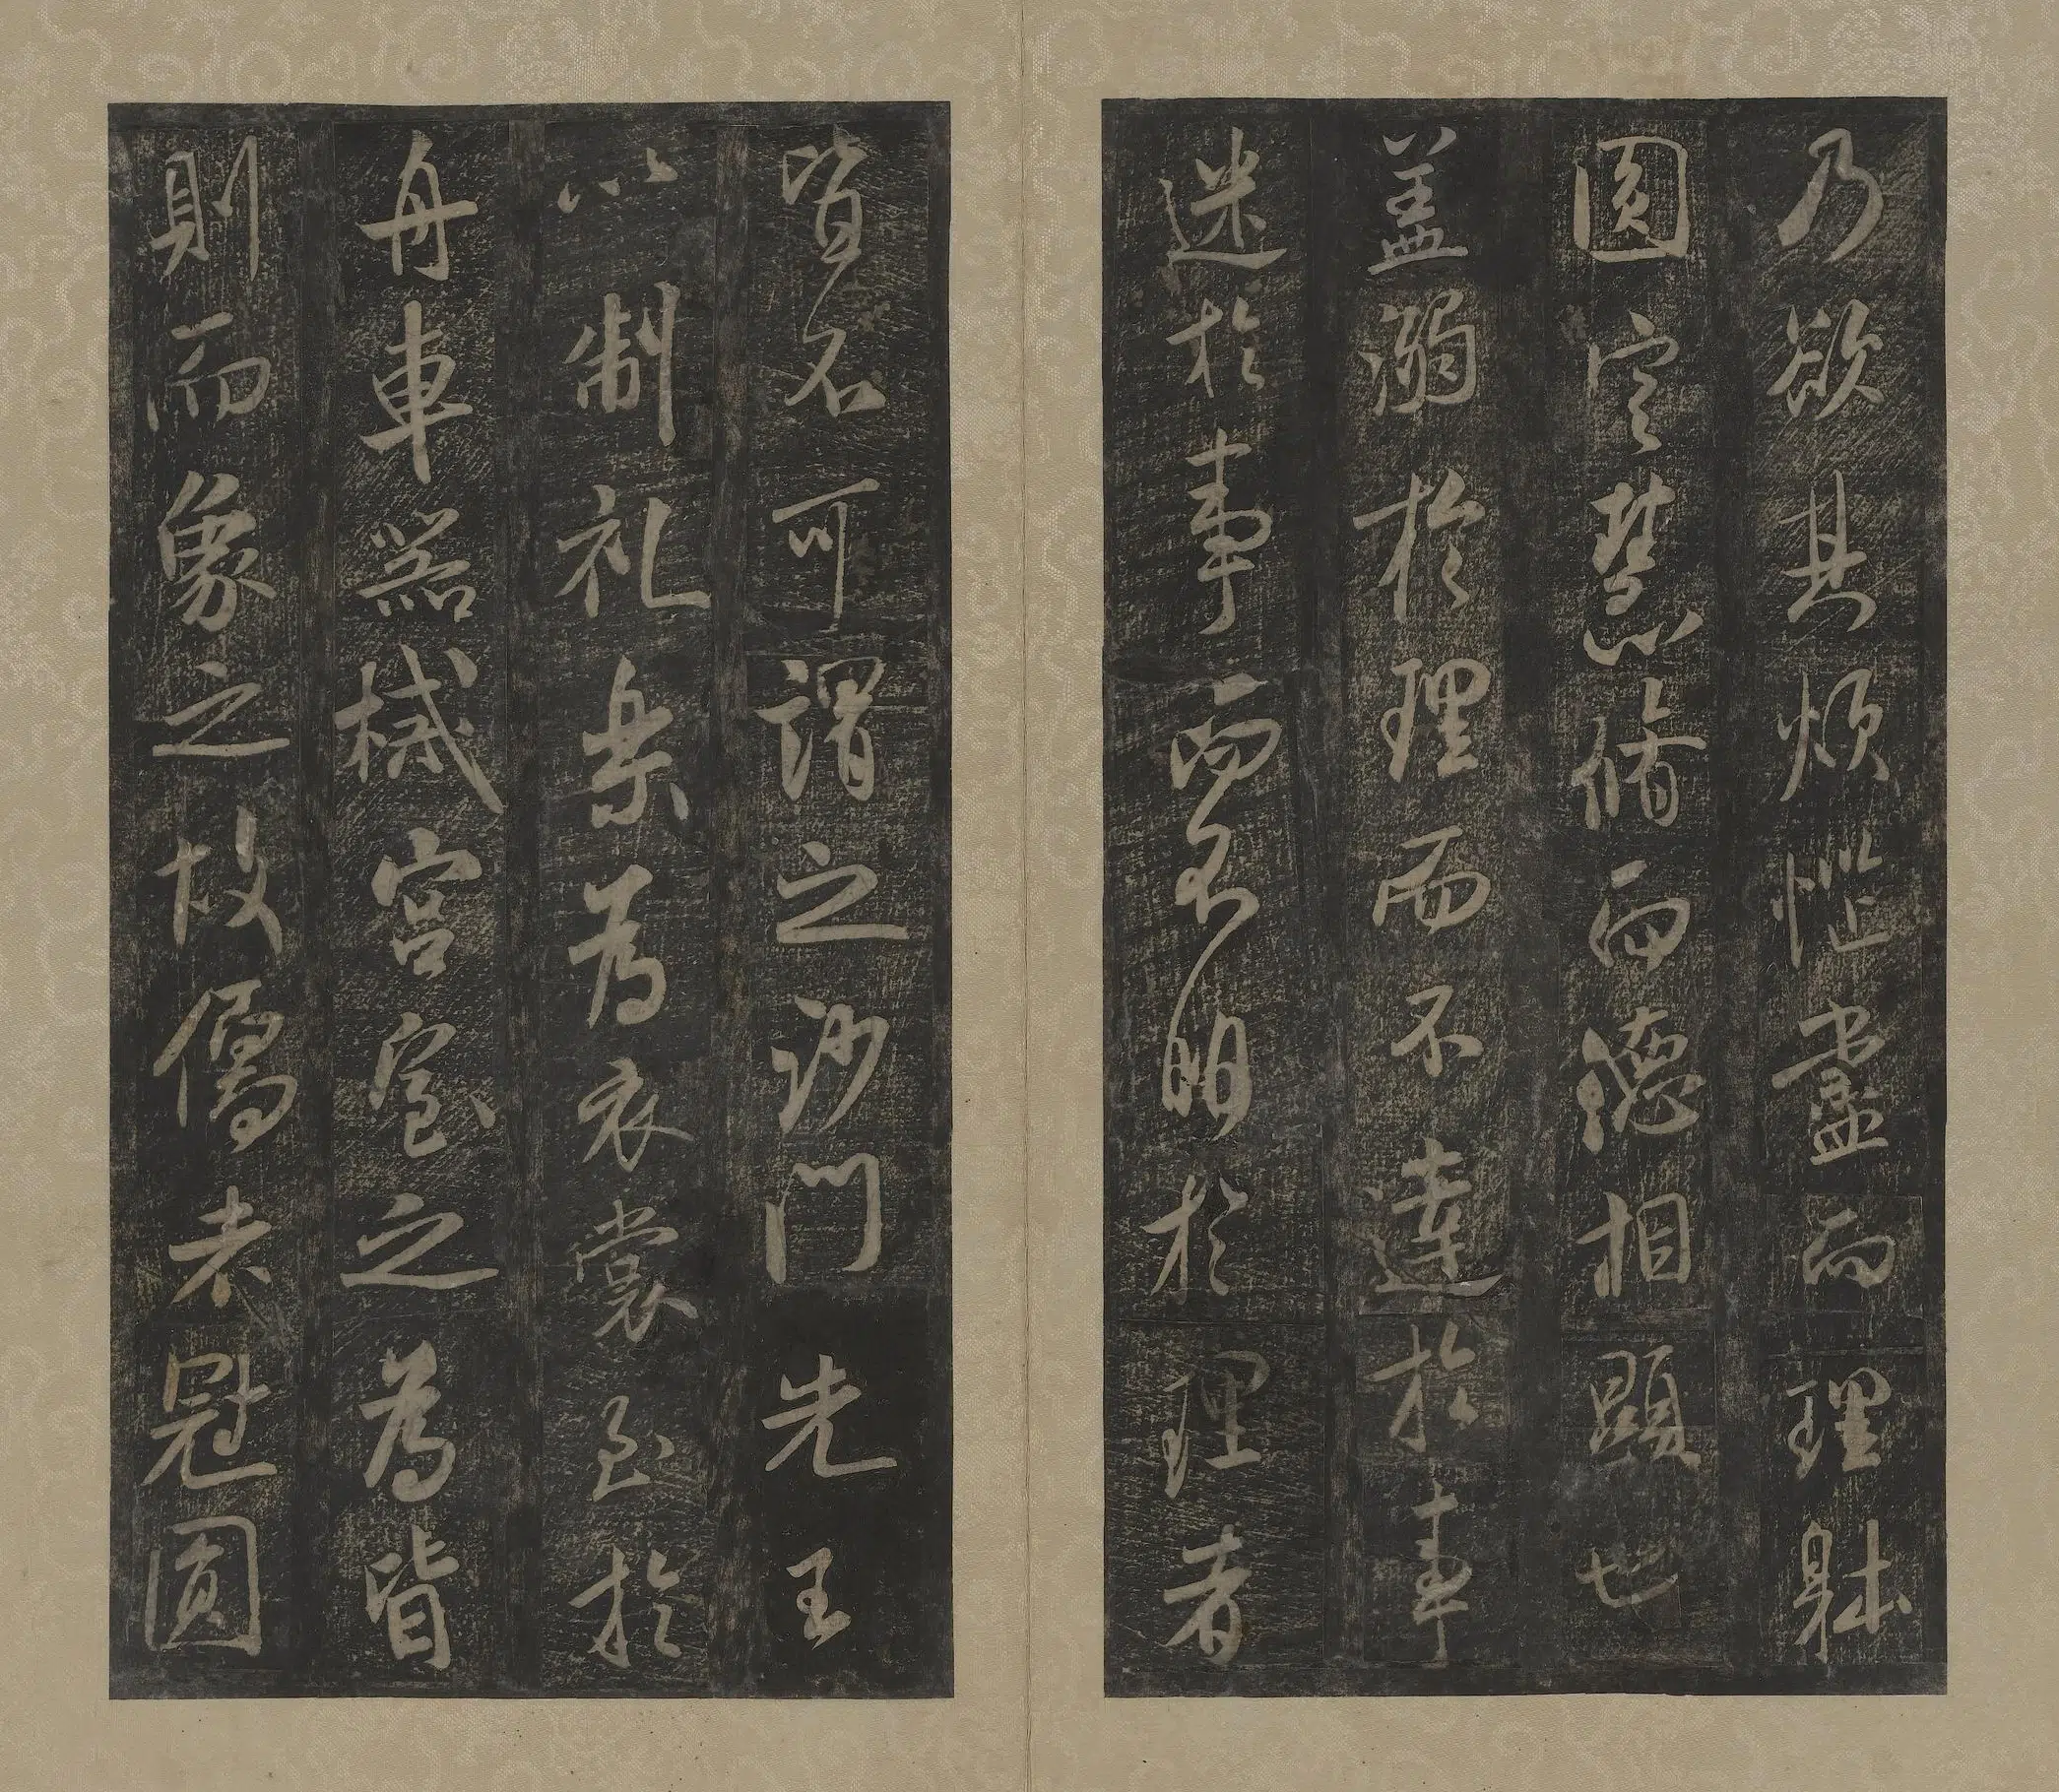 乃欲其煩惱盡而理躰
圆定慧脩而德相顯也
盖溺於理而不達於事
迷於事而不明於理者
皆不可謂之沙門先王
以制礼樂為衣裳至於
舟車器械宮室之為皆
則而象之故儒者冠圓